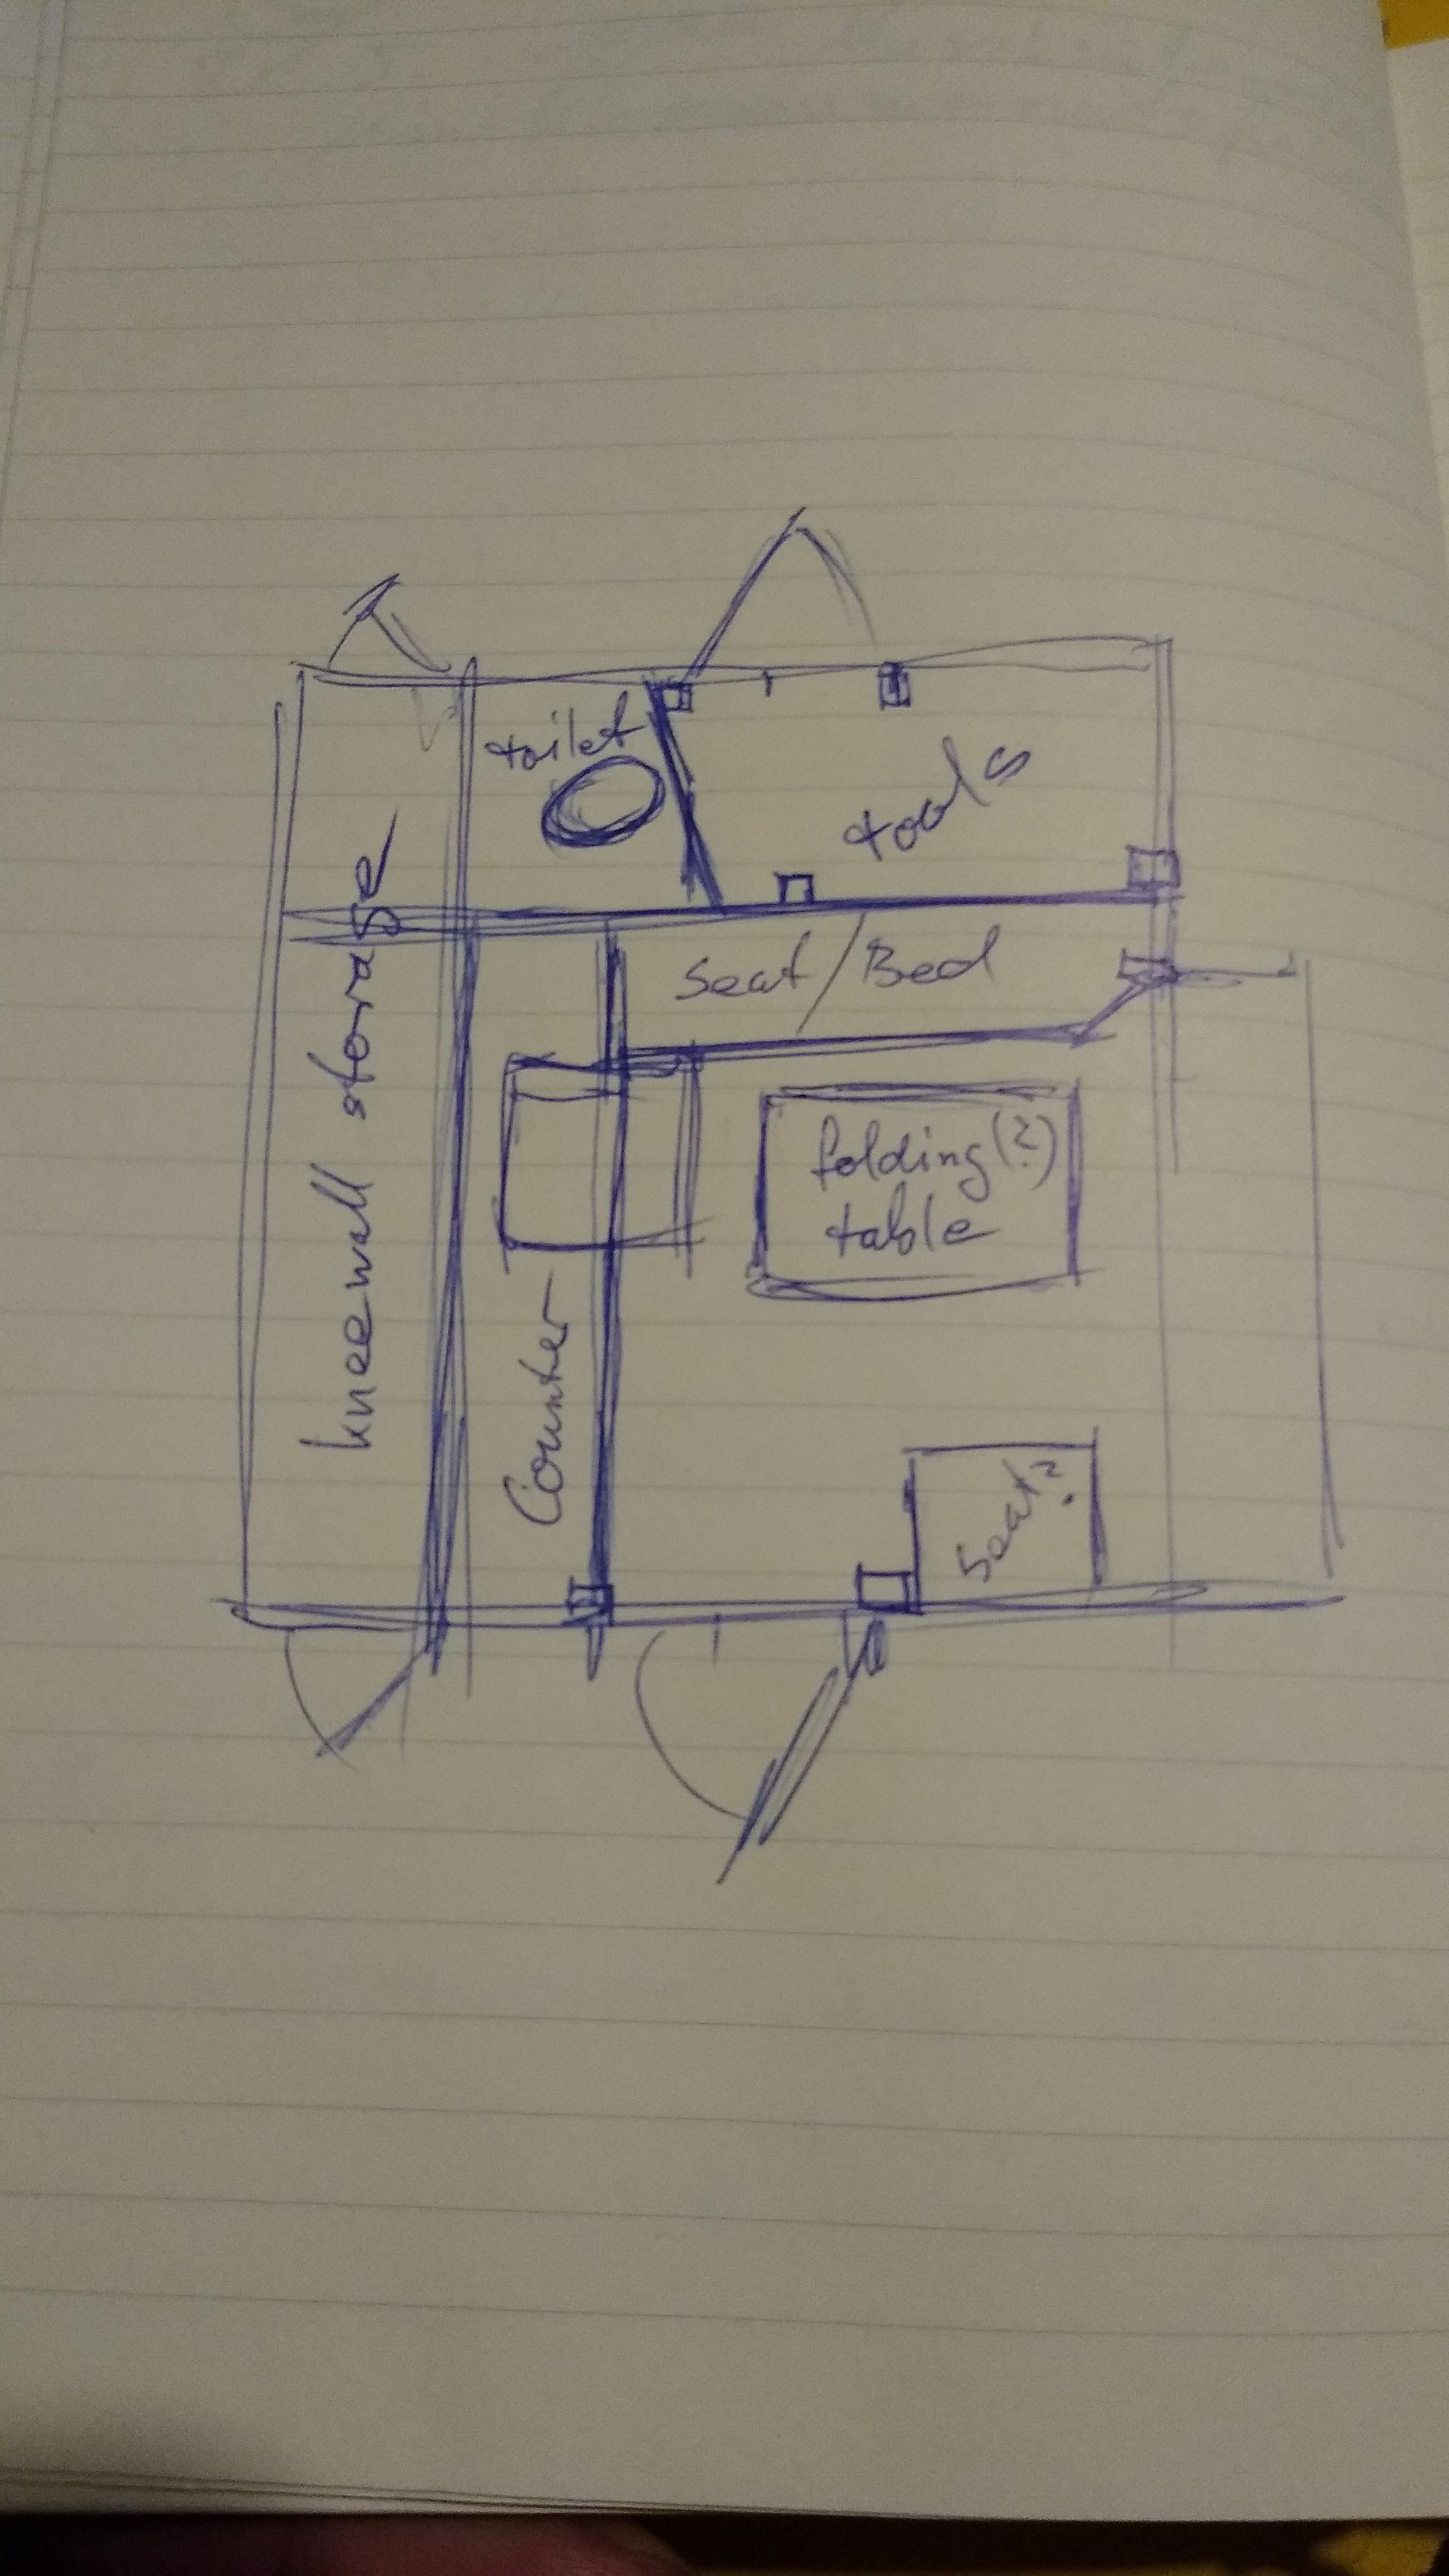 toilet
tools
kneewall storage
Seat/Bed
folding(?)
table
Counter
Seat?